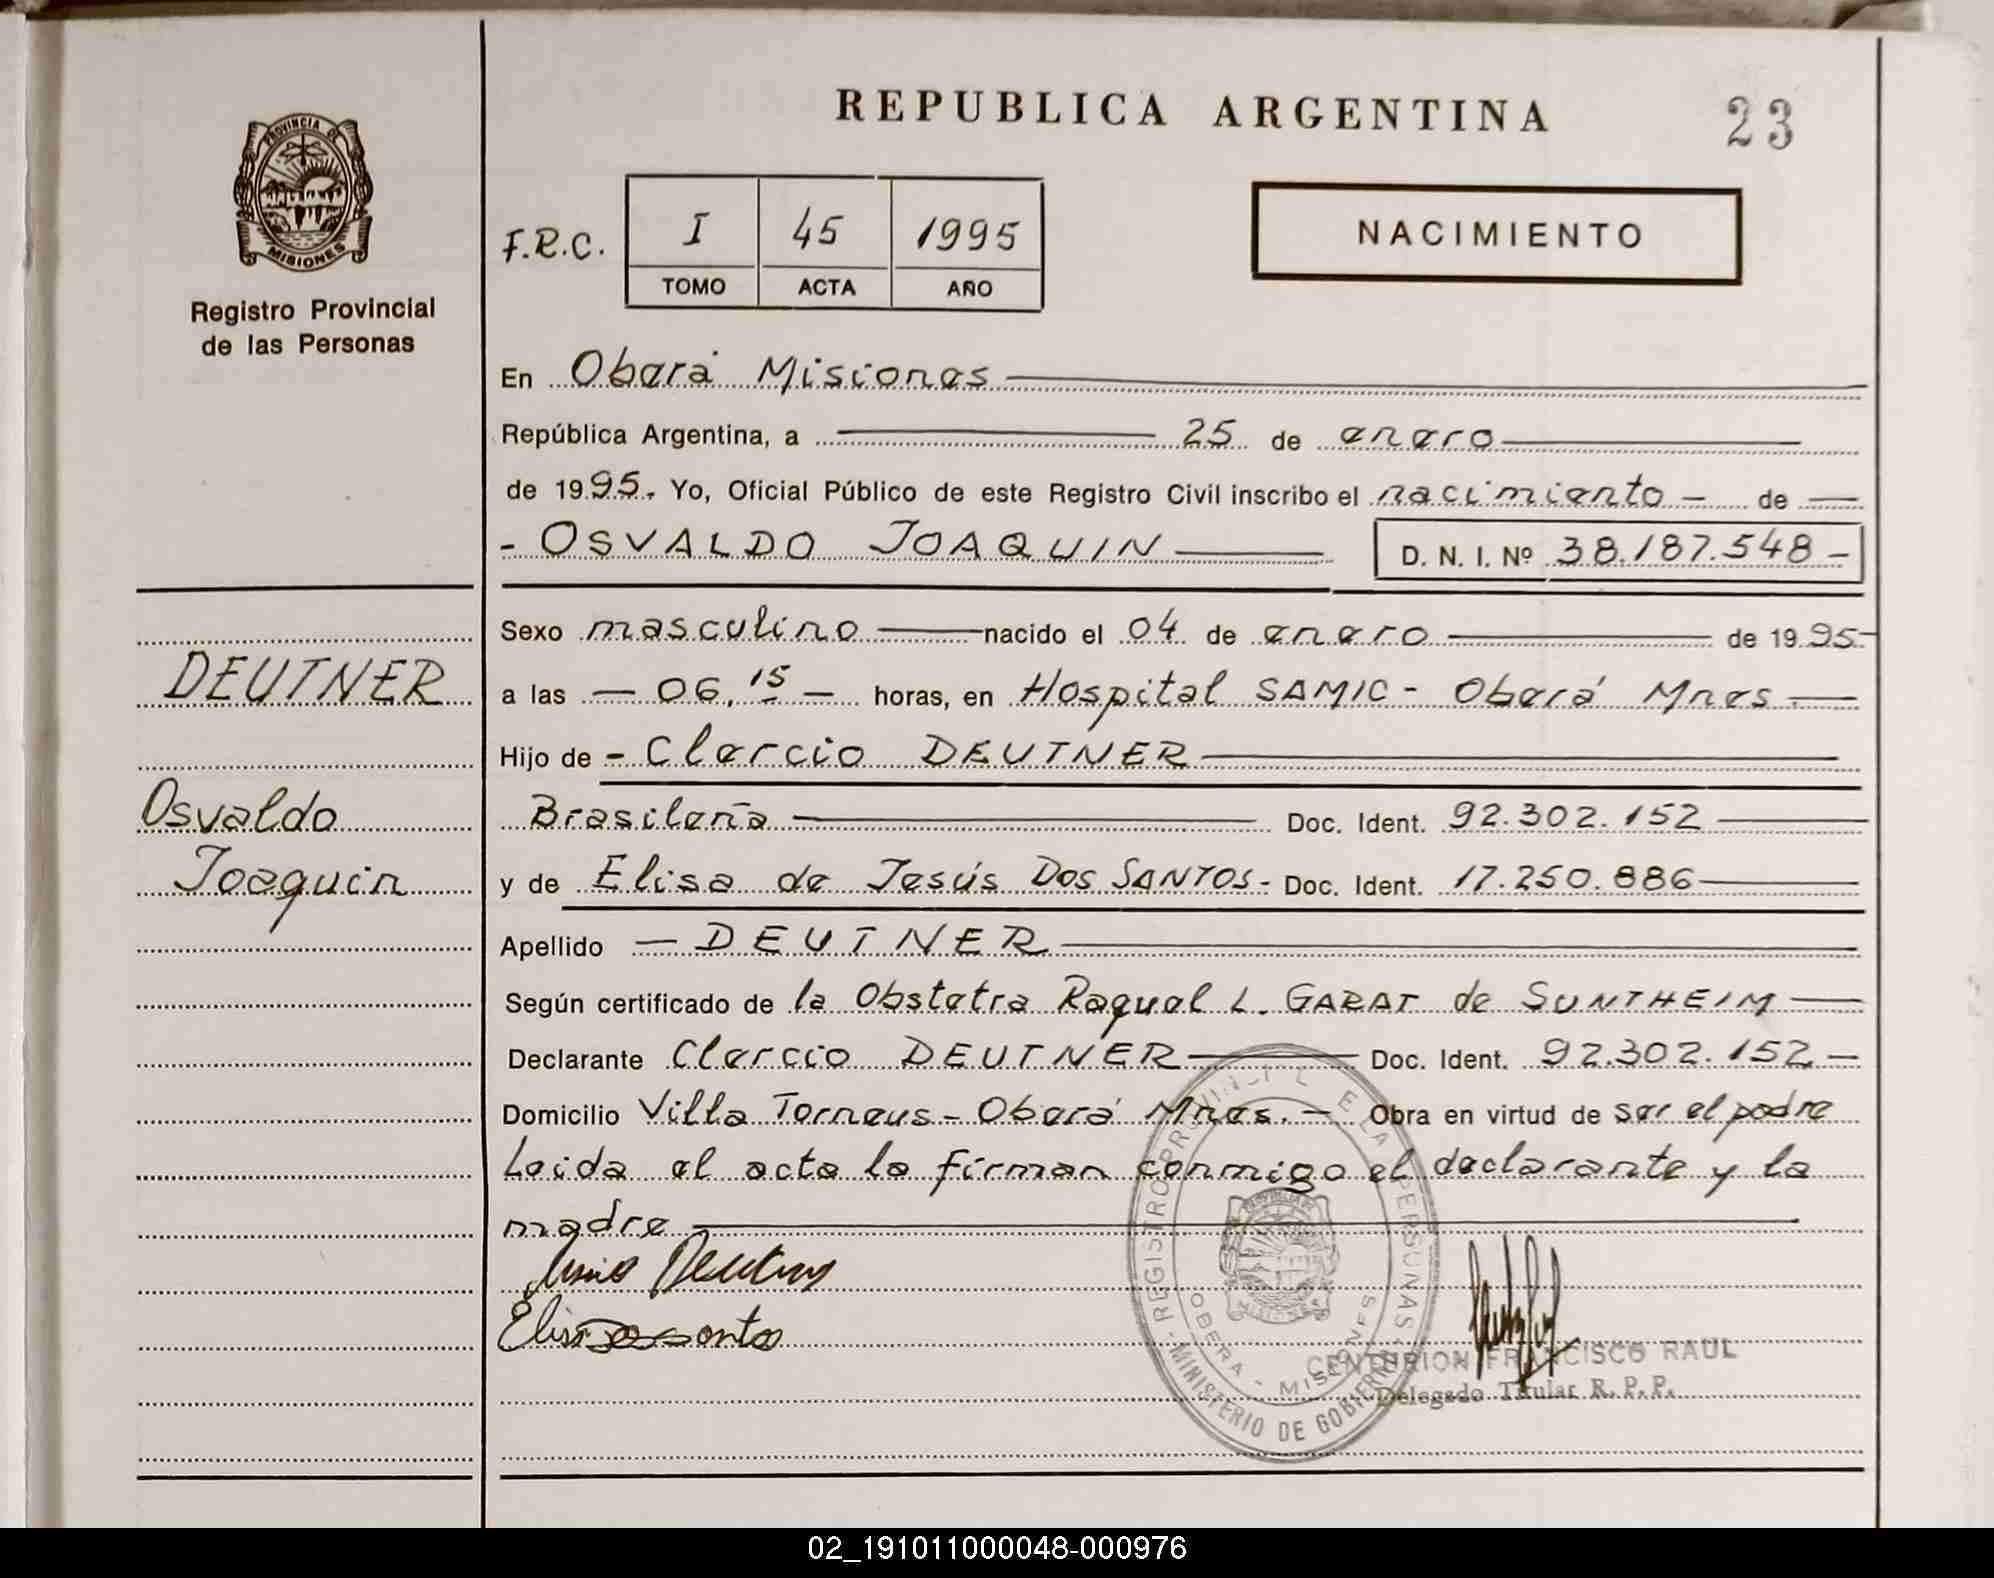 REPUBLICA ARGENTINA
23
PROVINCIA DE
MISIONES
Registro Provincial
de las Personas
F.R.C.
I 45 1995
TOMO ACTA AÑO
NACIMIENTO
En Oberá Misiones
República Argentina, a 25 de enero
de 1995. Yo, Oficial Público de este Registro Civil inscribo el nacimiento - de
- OSVALDO JOAQUIN D. N. I. Nº 38.187.548 -
Sexo masculino nacido el 04 de enero de 1995-
a las - 06,15 - horas, en Hospital SAMIC - Oberá Mnes.
Hijo de - Clercio DEUTNER
Brasileña Doc. Ident. 92.302.152
y de Elisa de Jesús DOS SANTOS - Doc. Ident. 17.250.886
Apellido - DEUTNER
Según certificado de la Obstetra Raquel L. GARAT de SUNTHEIM
Declarante Clercio DEUTNER Doc. Ident. 92.302.152 -
Domicilio Villa Torneus - Oberá Mnes. - Obra en virtud de ser el padre
Leida el acta la firman conmigo el declarante y la
madre
DEUTNER
Osvaldo
Joaquin
Elisa Dos santos
REGISTRO PROVINCIAL DE LAS PERSONAS
MINISTERIO DE GOBIERNO
OBERA - MISIONES
CENTURION FRANCISCO RAUL
Delegado Titular R. P. P.
02_191011000048-000976